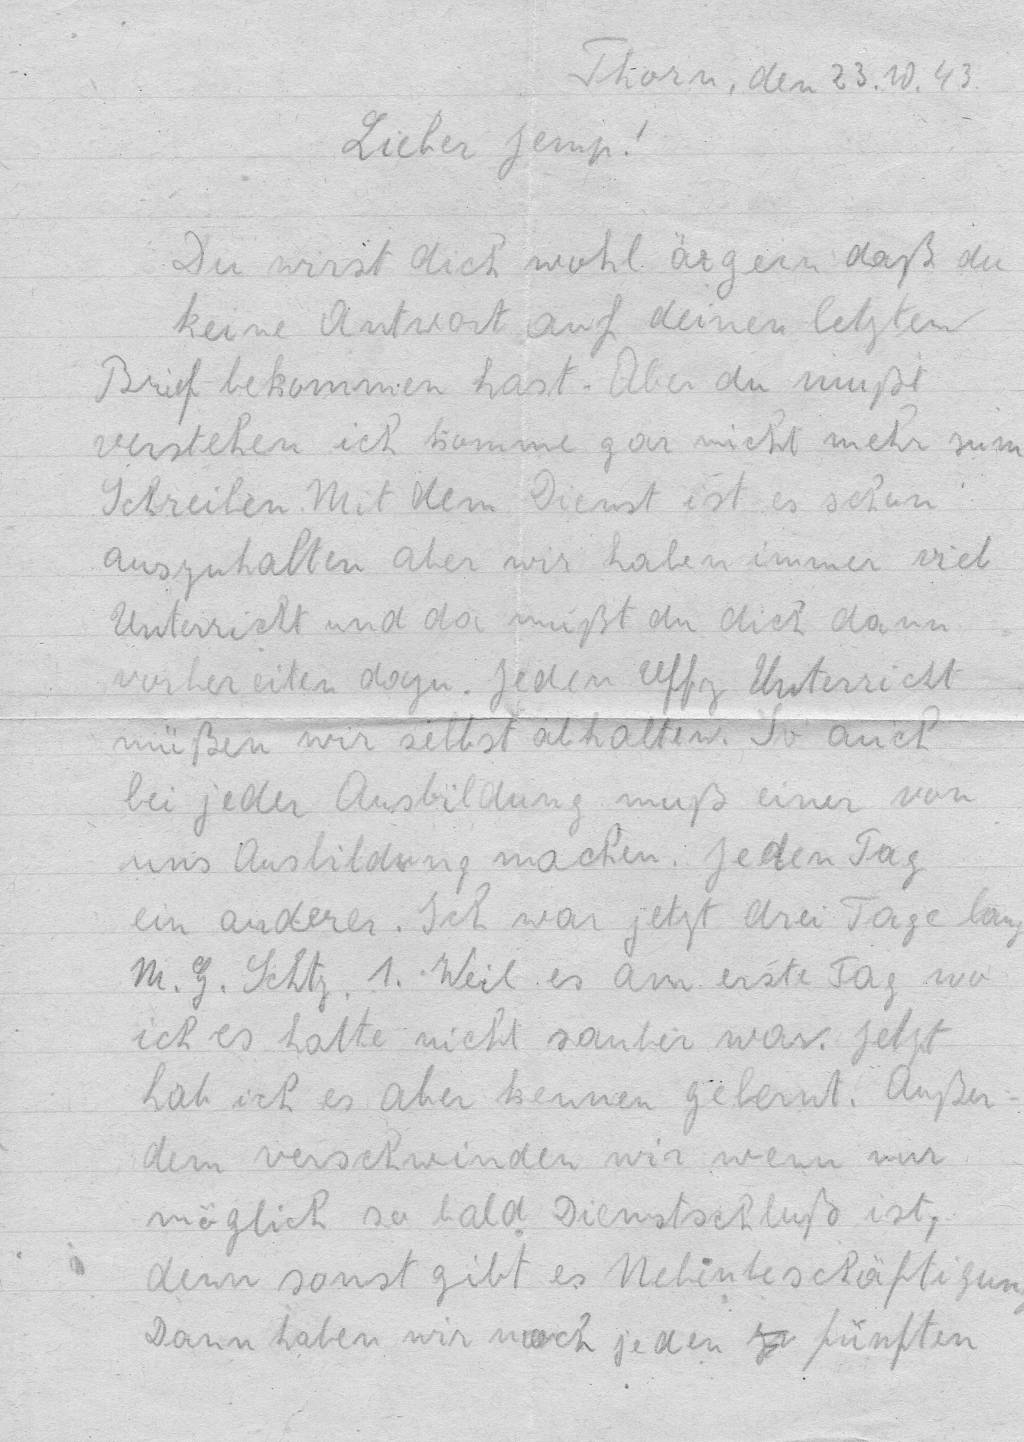 Thorn, den 23.10.43
Lieber Jemp!
Du wirst dich wohl ärgern daß du
keine Antwort auf deinen letzten
Brief bekommen hast. Aber du mußt
verstehen ich komme gar nicht mehr zum
Schreiben. Mit dem Dienst ist es schon
auszuhalten aber wir haben immer viel
Unterricht und da mußt du dich dann
vorbereiten dazu. Jeden Uffz Unterricht
müßen wir selbst abhalten. So auch
bei jeder Ausbildung muß einer von
uns Ausbildung machen. Jeden Tag
ein anderer. Ich war jetzt drei Tage lang
M. G. Schtz. 1. Weil es am erste Tag wo
ich es hatte nicht sauber war. Jetzt
hab ich es aber kennen gelernt. Außer-
dem verschwinden wir wenn nur
möglich so bald Dienstschluß ist,
denn sonst gibt es Nebenbeschäftigung
Dann haben wir noch jeden fünften